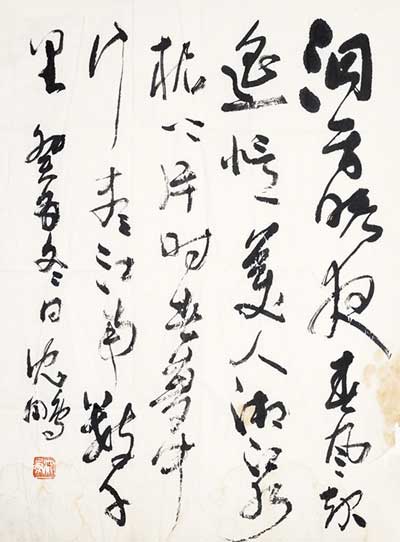 洞房昨夜春風起
遥憶美人湘江水
枕上片时春夢中
行尽江南數千
里 癸亥冬日沈鹏